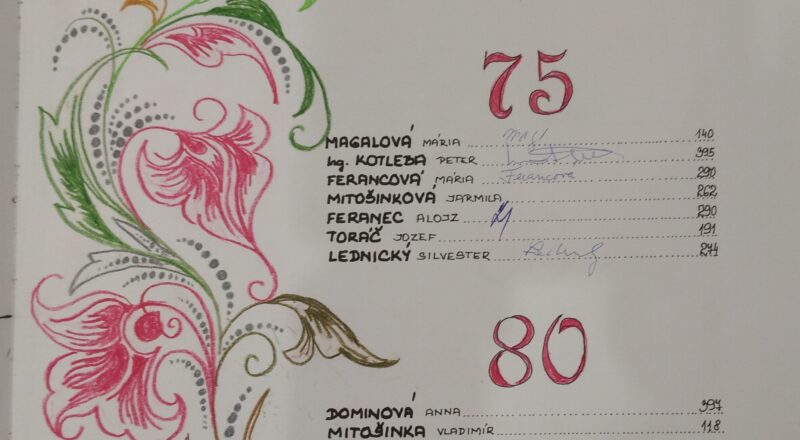 75
MAGALOVÁ MÁRIA 140
Ing. KOTLEBA PETER 395
FERANCOVÁ MÁRIA Ferancova 290
MITOŠINKOVÁ JARMILA 262
FERANEC ALOJZ 290
TORÁČ JOZEF 191
LEDNICKÝ SILVESTER 274
80
DOMINOVÁ ANNA 397
MITOŠINKA VLADIMÍR 118